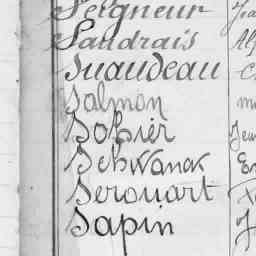 Seigneur
Saudrais
Suaudeau
Salmon
Sohier
Schwanar
Serouart
Sapin